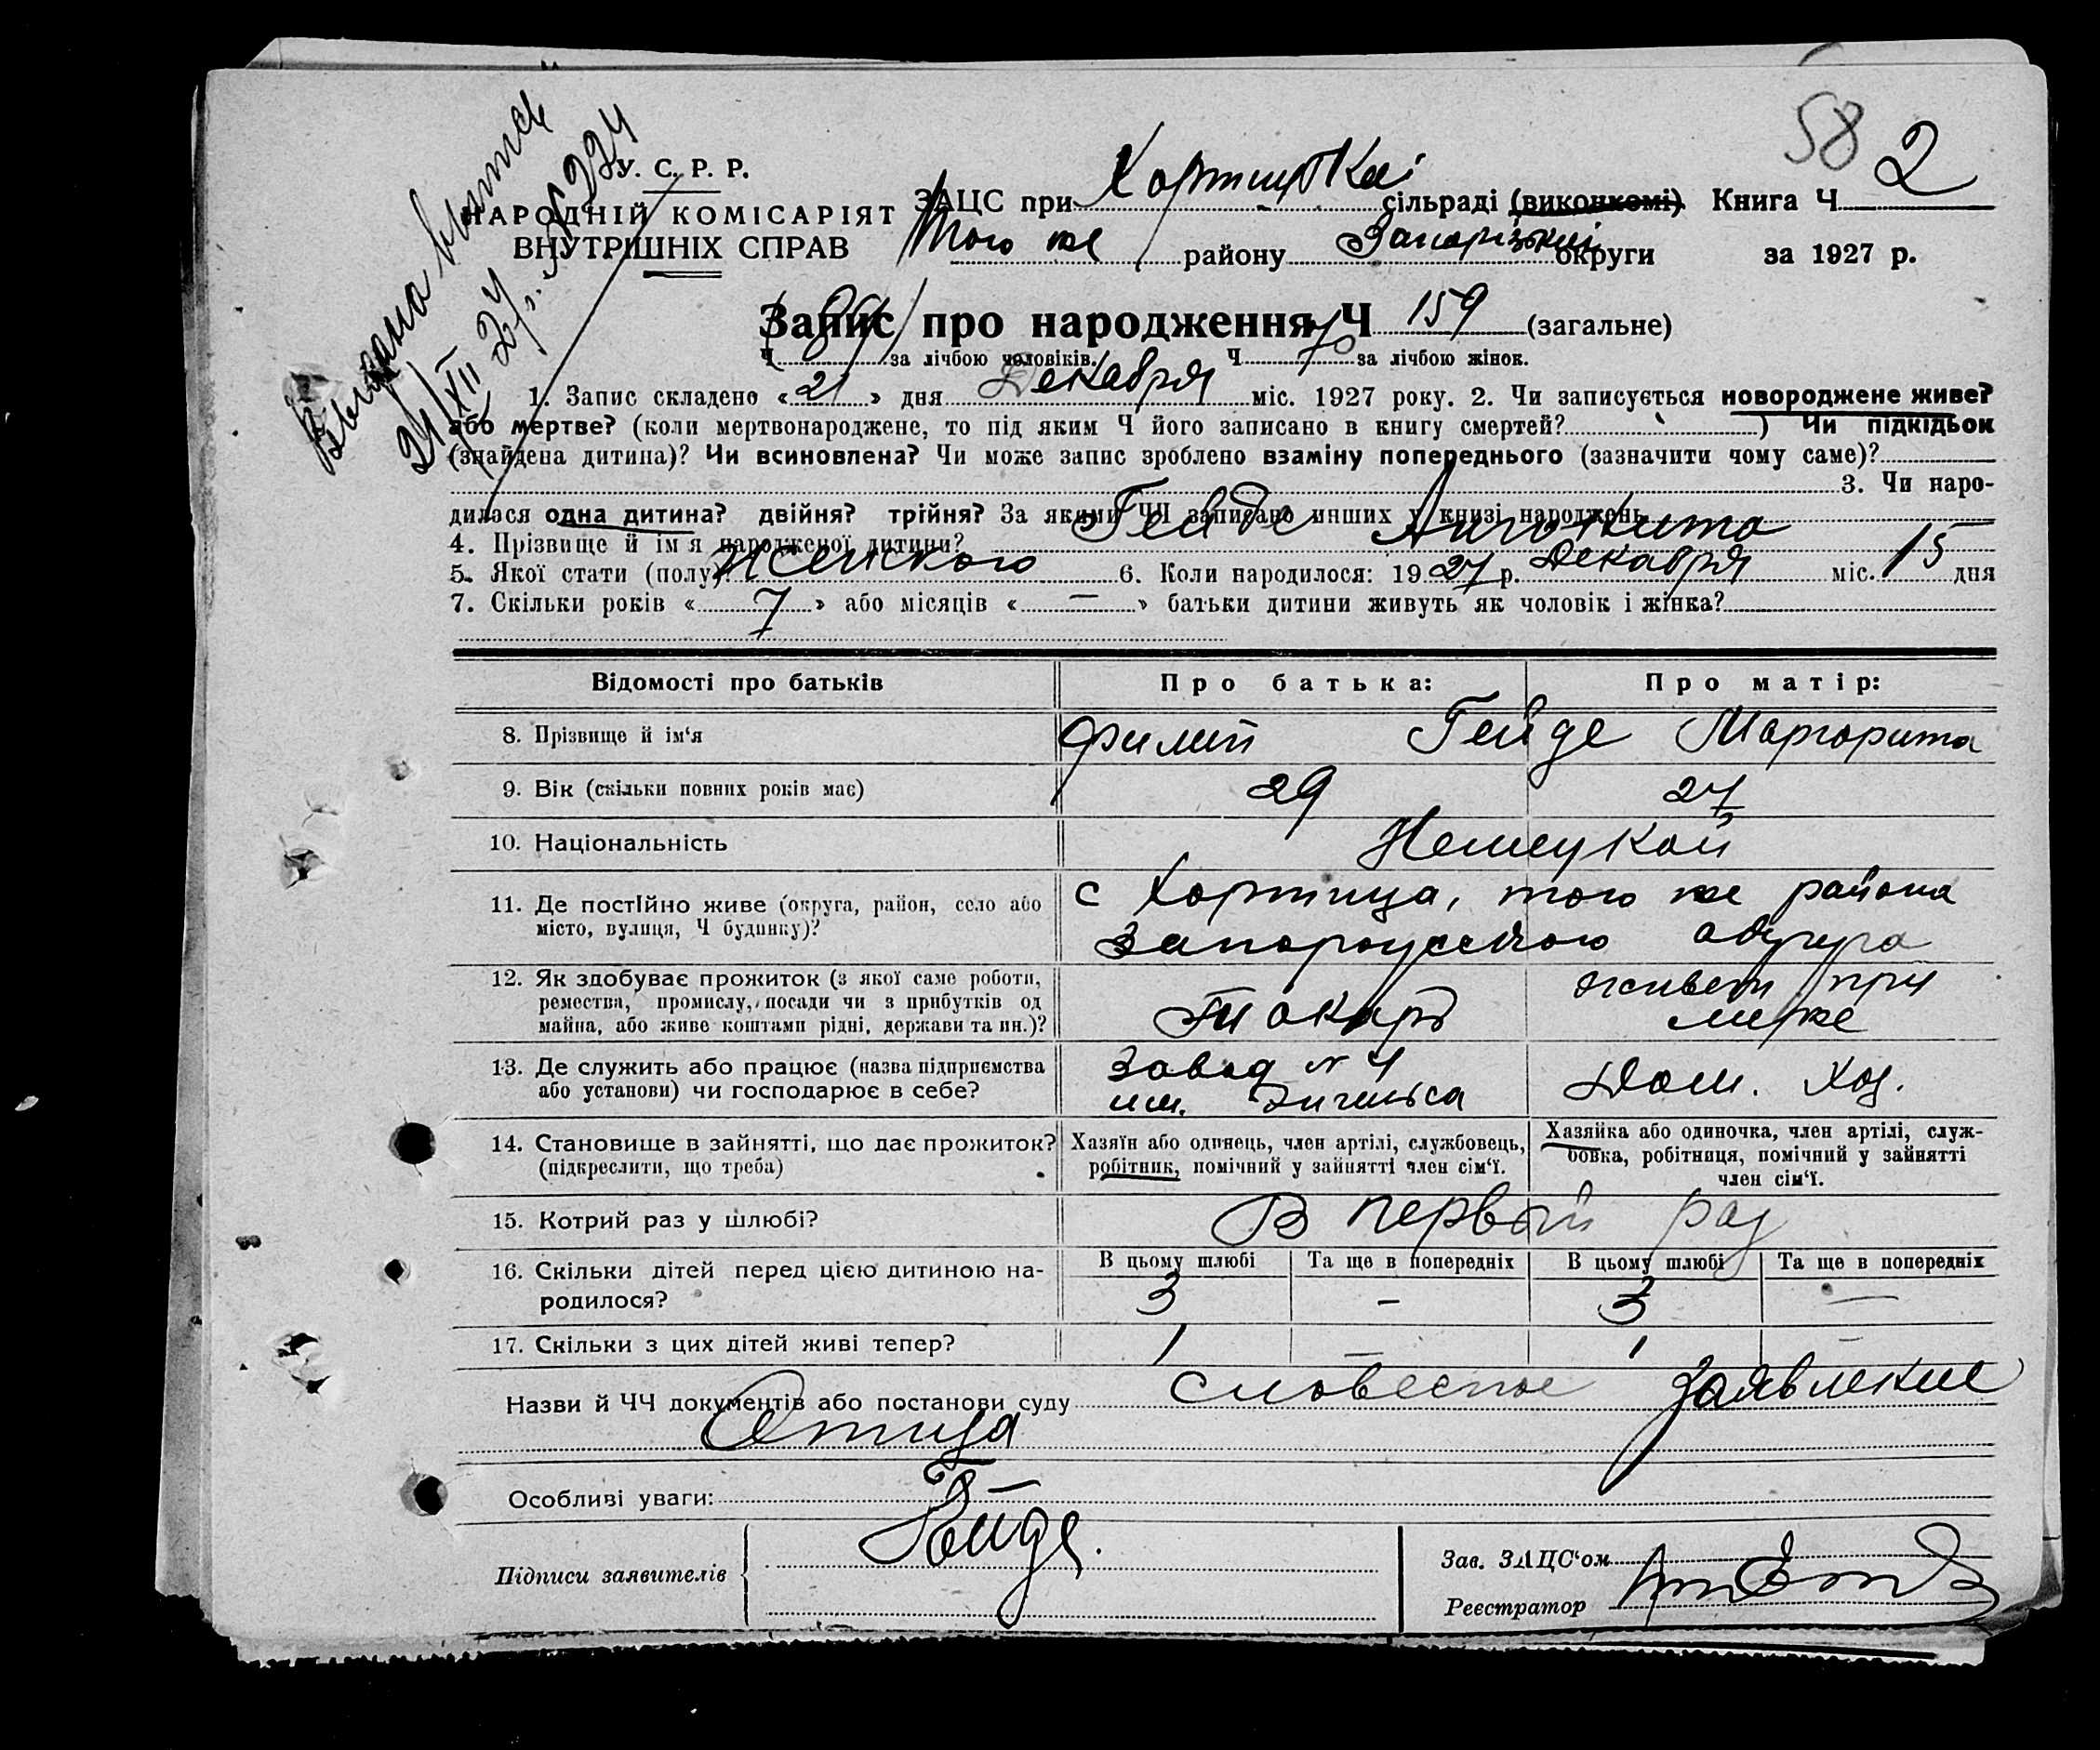 Выдана выпись
21/XII 27 г. № 224
58 2
У. С. Р. Р.
НАРОДНІЙ КОМІСАРІЯТ
ВНУТРІШНІХ СПРАВ
ЗАЦС при Хортицкій сільраді (виконкомі) Книга Ч 2
Того же району Запорізькій округи за 1927 р.
Запис про народження Ч 159 (загальне)
Ч 89 за лічбою чоловіків. Ч 70 за лічбою жінок.
1. Запис складено « 21 » дня Декабря міс. 1927 року. 2. Чи записується новороджене живе?
або мертве? (коли мертвонароджене, то під яким Ч його записано в книгу смертей? ) Чи підкідьок
(знайдена дитина)? Чи всиновлена? Чи може запис зроблено взаміну попереднього (зазначити чому саме)?
3. Чи наро-
дилося одна дитина? двійня? трійня? За якими ЧЧ записано инших у книзі народжень
4. Прізвище й ім'я народженої дитини? Гейде
5. Якої стати (полу)? Женского 6. Коли народилося: 1927 р. Декабря міс. 15 дня
7. Скільки років « 7 » або місяців « — » батьки дитини живуть як чоловік і жінка?
Відомості про батьків Про батька: Про матір:
8. Прізвище й ім'я Филип Гейде Маргарита
9. Вік (скільки повних років має) 29 27
10. Національність Немецкой
11. Де постійно живе (округа, район, село або с Хортица, того же района
місто, вулиця, Ч будинку)? Запорожского округа
12. Як здобуває прожиток (з якої саме роботи, живет при
ремества, промислу, посади чи з прибутків од Токарь муже
майна, або живе коштами рідні, держави та ин.)?
13. Де служить або працює (назва підприємства Завод № 4
або установи) чи господарює в себе? им. Энгельса Дом. хоз.
14. Становище в зайнятті, що дає прожиток? Хазяїн або одинець, член артілі, службовець, Хазяйка або одиночка, член артілі, служ-
(підкреслити, що треба) робітник, помічний у зайнятті член сім'ї. бовка, робітниця, помічний у зайнятті
член сім'ї.
15. Котрий раз у шлюбі? В первый раз
16. Скільки дітей перед цією дитиною на- В цьому шлюбі Та ще в попередніх В цьому шлюбі Та ще в попередніх
родилося? 3 — 3 —
17. Скільки з цих дітей живі тепер? 1 — 1 —
Назви й ЧЧ документів або постанови суду словесное заявление
Отица
Особливі уваги:
Підписи заявителів Гейде.
Зав. ЗАЦС'ом
Реєстратор